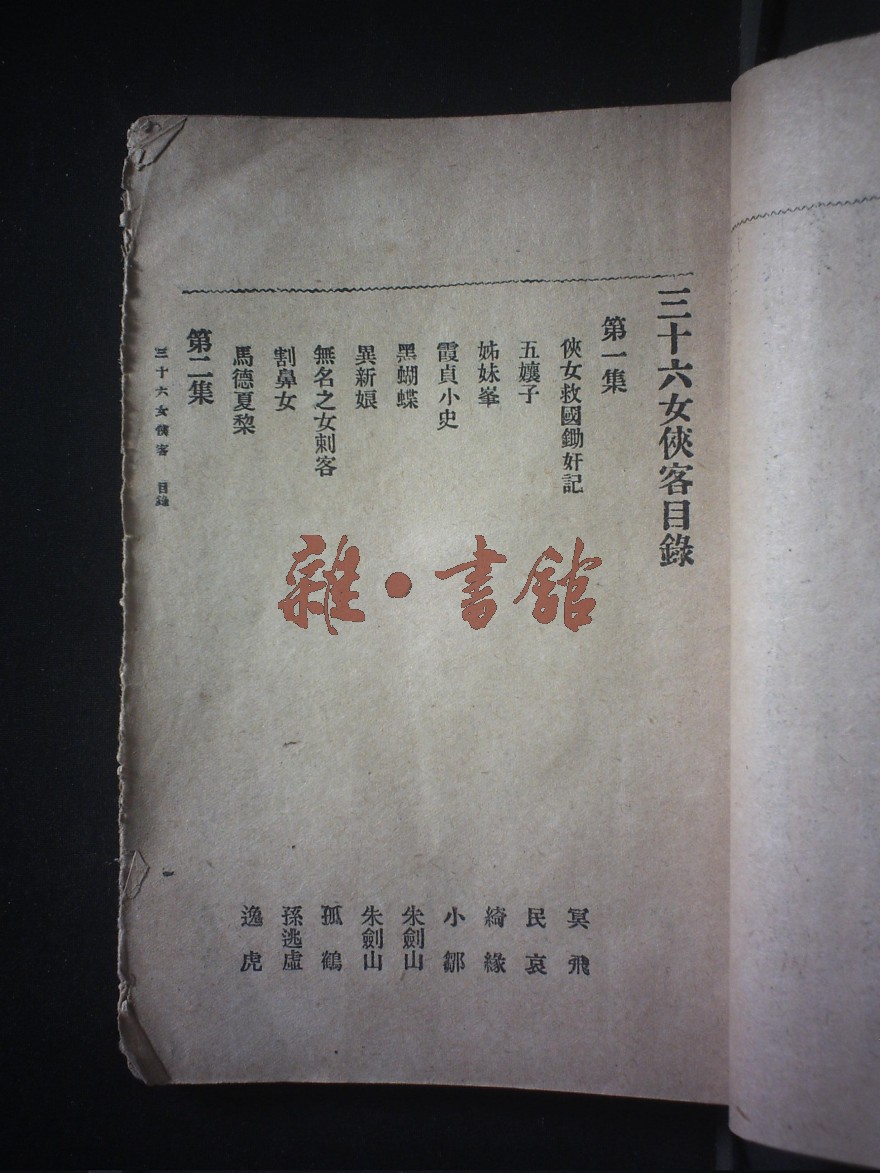 三十六女俠客目錄
第一集
俠女救國鋤奸記 冥飛
五孃子 民哀
姊妹峯 綺緣
霞貞小史 小鄒
黑蝴蝶 朱劍山
異新娘 朱劍山
無名之女刺客 孤鶴
割鼻女 孫逃虛
馬德夏黎 逸虎
第二集
三十六女俠客 目錄
一
雜·書館